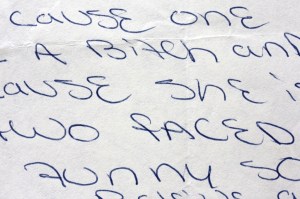 cause one
A Bitch and
cause she is
two faced
funny so